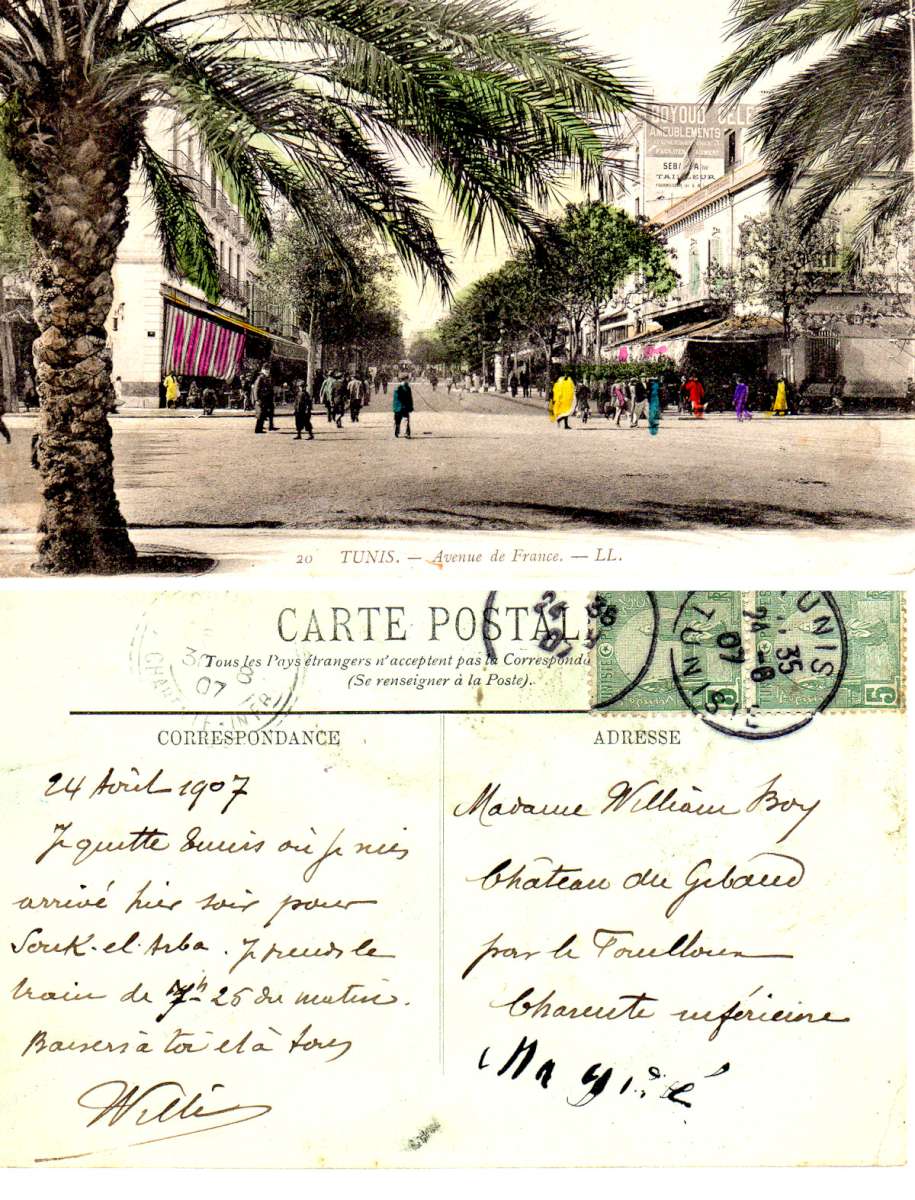 DOYOUD CELE
AMEUBLEMENTS
TAILLEUR
20 TUNIS. — Avenue de France. — LL.
CARTE POSTAL
Tous les Pays étrangers n'acceptent pas la Correspond
(Se renseigner à la Poste).
TUNIS
24 -8
07
35
5
5
30
8
07
CORRESPONDANCE
ADRESSE
24 Août 1907
Je quitte Tunis où je suis
arrivé hier soir pour
Souk-el-Arba. Je prends le
train de 7h 25 du matin.
Baisers à toi et à tous
Willi
Madame William Boy
Château du Gibaud
par le
Charente inférieure